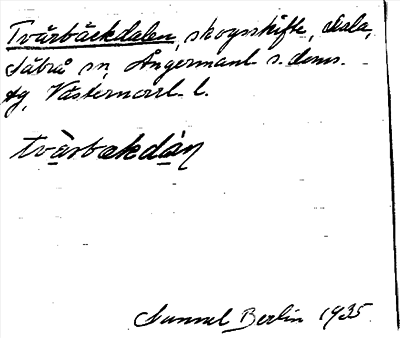 Tvärbäckdalen, skogsskifte, Stala,
Säbrå sn, Ångermanl. s. doms.
tg, Västernorrl. l.
tvàrbækdàn
Sunnel Berlin 1935